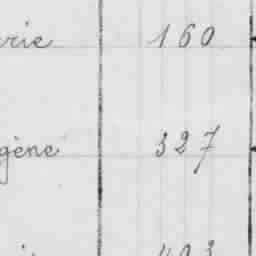 rie 160
gène 327